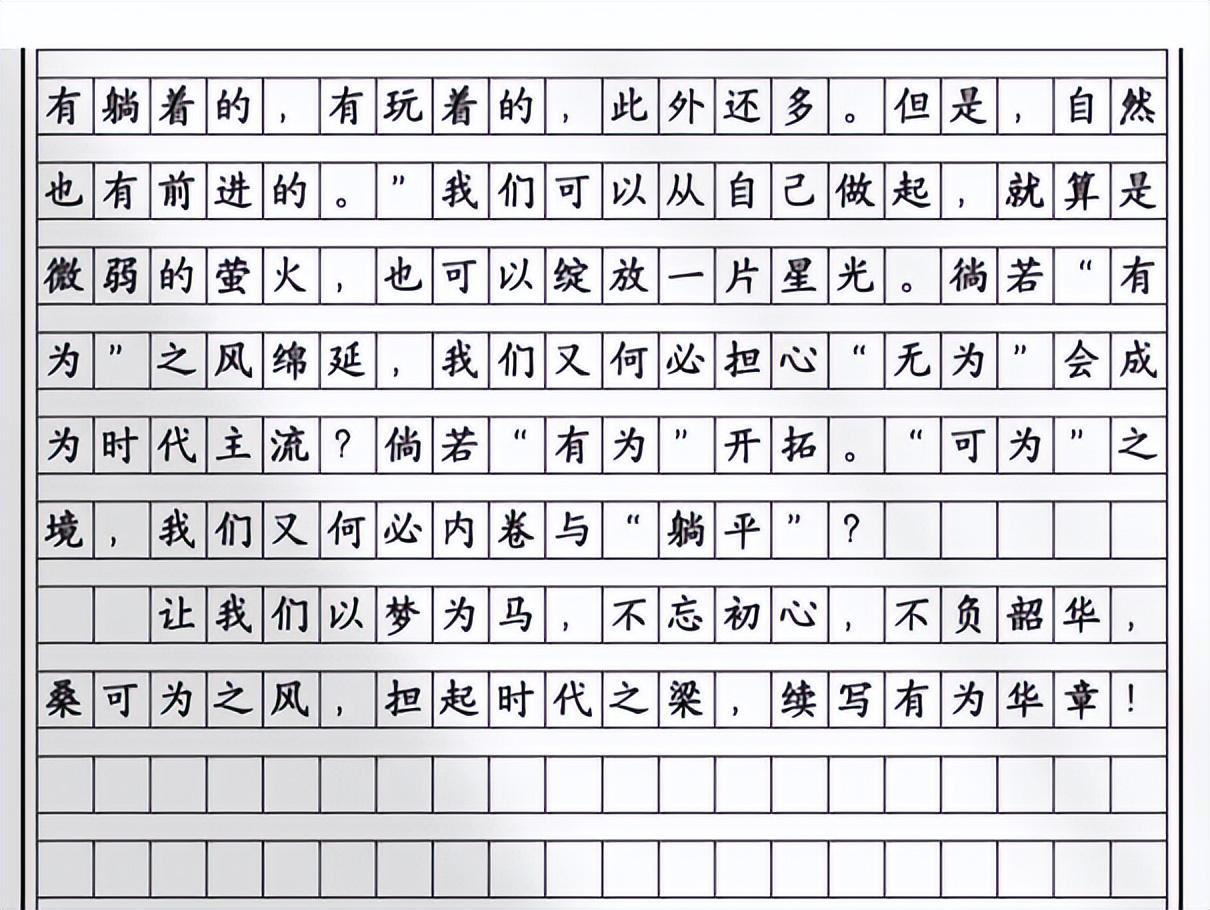 有躺着的，有玩着的，此外还多。但是，自然
也有前进的。”我们可以从自己做起，就算是
微弱的萤火，也可以绽放一片星光。徜若“有
为”之风绵延，我们又何必担心“无为”会成
为时代主流？倘若“有为”开拓。“可为”之
境，我们又何必内卷与“躺平”？
让我们以梦为马，不忘初心，不负韶华，
桑可为之风，担起时代之梁，续写有为华章！